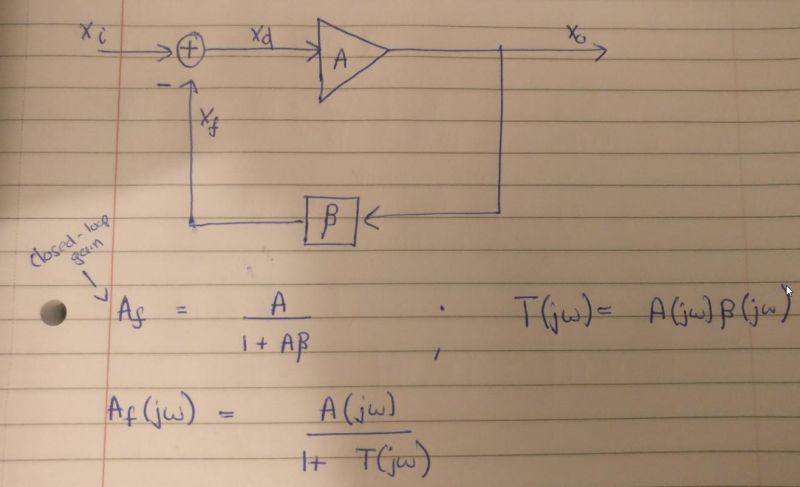 xi + xd A xo
−
xf
β
closed-loop
gain
Af = A / 1 + Aβ ; T(jω) = A(jω) β(jω)
Af(jω) = A(jω) / 1 + T(jω)